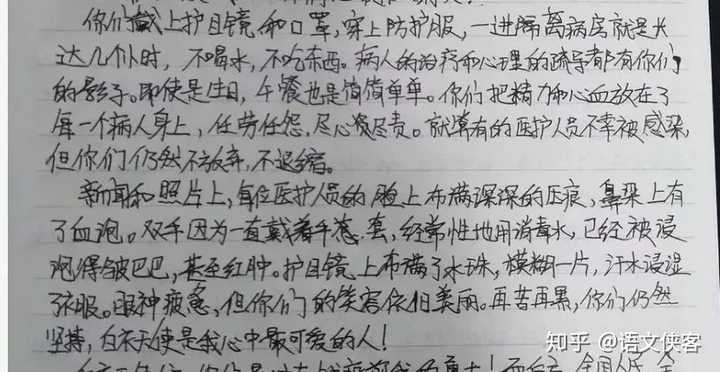 你们戴上护目镜和口罩,穿上防护服,一进隔离病房就是长
达几个小时,不喝水,不吃东西。病人的治疗和心理的疏导都有你们
的影子。即使是生日,午餐也是简简单单。你们把精力和心血放在了
每一个病人身上,任劳任怨,尽心尽责。就算有的医护人员不幸被感染,
但你们仍然不放弃,不退缩。
新闻和照片上,每位医护人员的脸上布满深深的压痕,鼻梁上有
了血泡。双手因为一直戴着手套,经常性地用消毒水,已经被浸
泡得皱巴巴,甚至红肿。护目镜上布满了水珠,模糊一片,汗水浸湿
了衣服。眼神疲惫,但你们的笑容依旧美丽。再苦再累,你们仍然
坚持,白衣天使是我心中最可爱的人!
知乎 @语文侠客